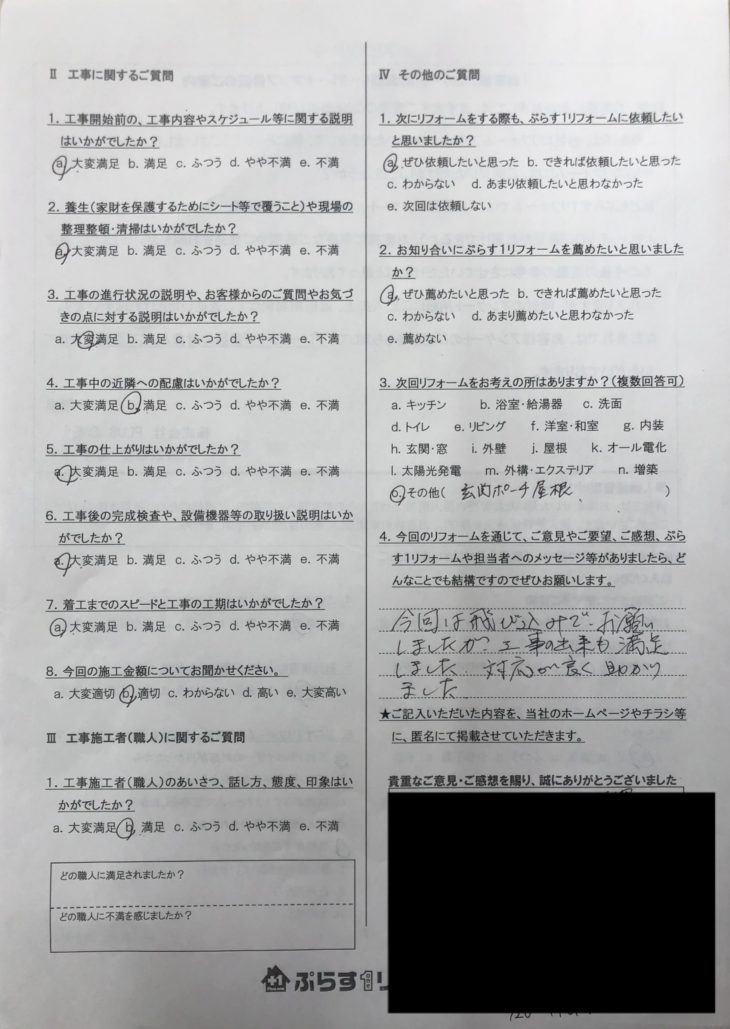 Ⅱ 工事に関するご質問
1. 工事開始前の、工事内容やスケジュール等に関する説明
はいかがでしたか？
a. 大変満足 b. 満足 c. ふつう d. やや不満 e. 不満
2. 養生(家財を保護するためにシート等で覆うこと)や現場の
整理整頓・清掃はいかがでしたか？
a. 大変満足 b. 満足 c. ふつう d. やや不満 e. 不満
3. 工事の進行状況の説明や、お客様からのご質問やお気づ
きの点に対する説明はいかがでしたか？
a. 大変満足 b. 満足 c. ふつう d. やや不満 e. 不満
4. 工事中の近隣への配慮はいかがでしたか？
a. 大変満足 b. 満足 c. ふつう d. やや不満 e. 不満
5. 工事の仕上がりはいかがでしたか？
a. 大変満足 b. 満足 c. ふつう d. やや不満 e. 不満
6. 工事後の完成検査や、設備機器等の取り扱い説明はいか
がでしたか？
a. 大変満足 b. 満足 c. ふつう d. やや不満 e. 不満
7. 着工までのスピードと工事の工期はいかがでしたか？
a. 大変満足 b. 満足 c. ふつう d. やや不満 e. 不満
8. 今回の施工金額についてお聞かせください。
a. 大変適切 b. 適切 c. わからない d. 高い e. 大変高い
Ⅲ 工事施工者(職人)に関するご質問
1. 工事施工者(職人)のあいさつ、話し方、態度、印象はい
かがでしたか？
a. 大変満足 b. 満足 c. ふつう d. やや不満 e. 不満
どの職人に満足されましたか？
どの職人に不満を感じましたか？
Ⅳ その他のご質問
1. 次にリフォームをする際も、ぷらす1リフォームに依頼したい
と思いましたか？
a. ぜひ依頼したいと思った b. できれば依頼したいと思った
c. わからない d. あまり依頼したいと思わなかった
e. 次回は依頼しない
2. お知り合いにぷらす1リフォームを薦めたいと思いました
か？
a. ぜひ薦めたいと思った b. できれば薦めたいと思った
c. わからない d. あまり薦めたいと思わなかった
e. 薦めない
3. 次回リフォームをお考えの所はありますか？(複数回答可)
a. キッチン b. 浴室・給湯器 c. 洗面
d. トイレ e. リビング f. 洋室・和室 g. 内装
h. 玄関・窓 i. 外壁 j. 屋根 k. オール電化
l. 太陽光発電 m. 外構・エクステリア n. 増築
o. その他( 玄関ポーチ屋根 )
4. 今回のリフォームを通じて、ご意見やご要望、ご感想、ぷら
す1リフォームや担当者へのメッセージ等がありましたら、ど
んなことでも結構ですのでぜひお願いします。
今回は飛び込みでお願い
しましたが 工事の出来も満足
しました 対応が良く助かり
ました
★ご記入いただいた内容を、当社のホームページやチラシ等
に、匿名にて掲載させていただきます。
貴重なご意見・ご感想を賜り、誠にありがとうございました
+1 ぷらす1リ